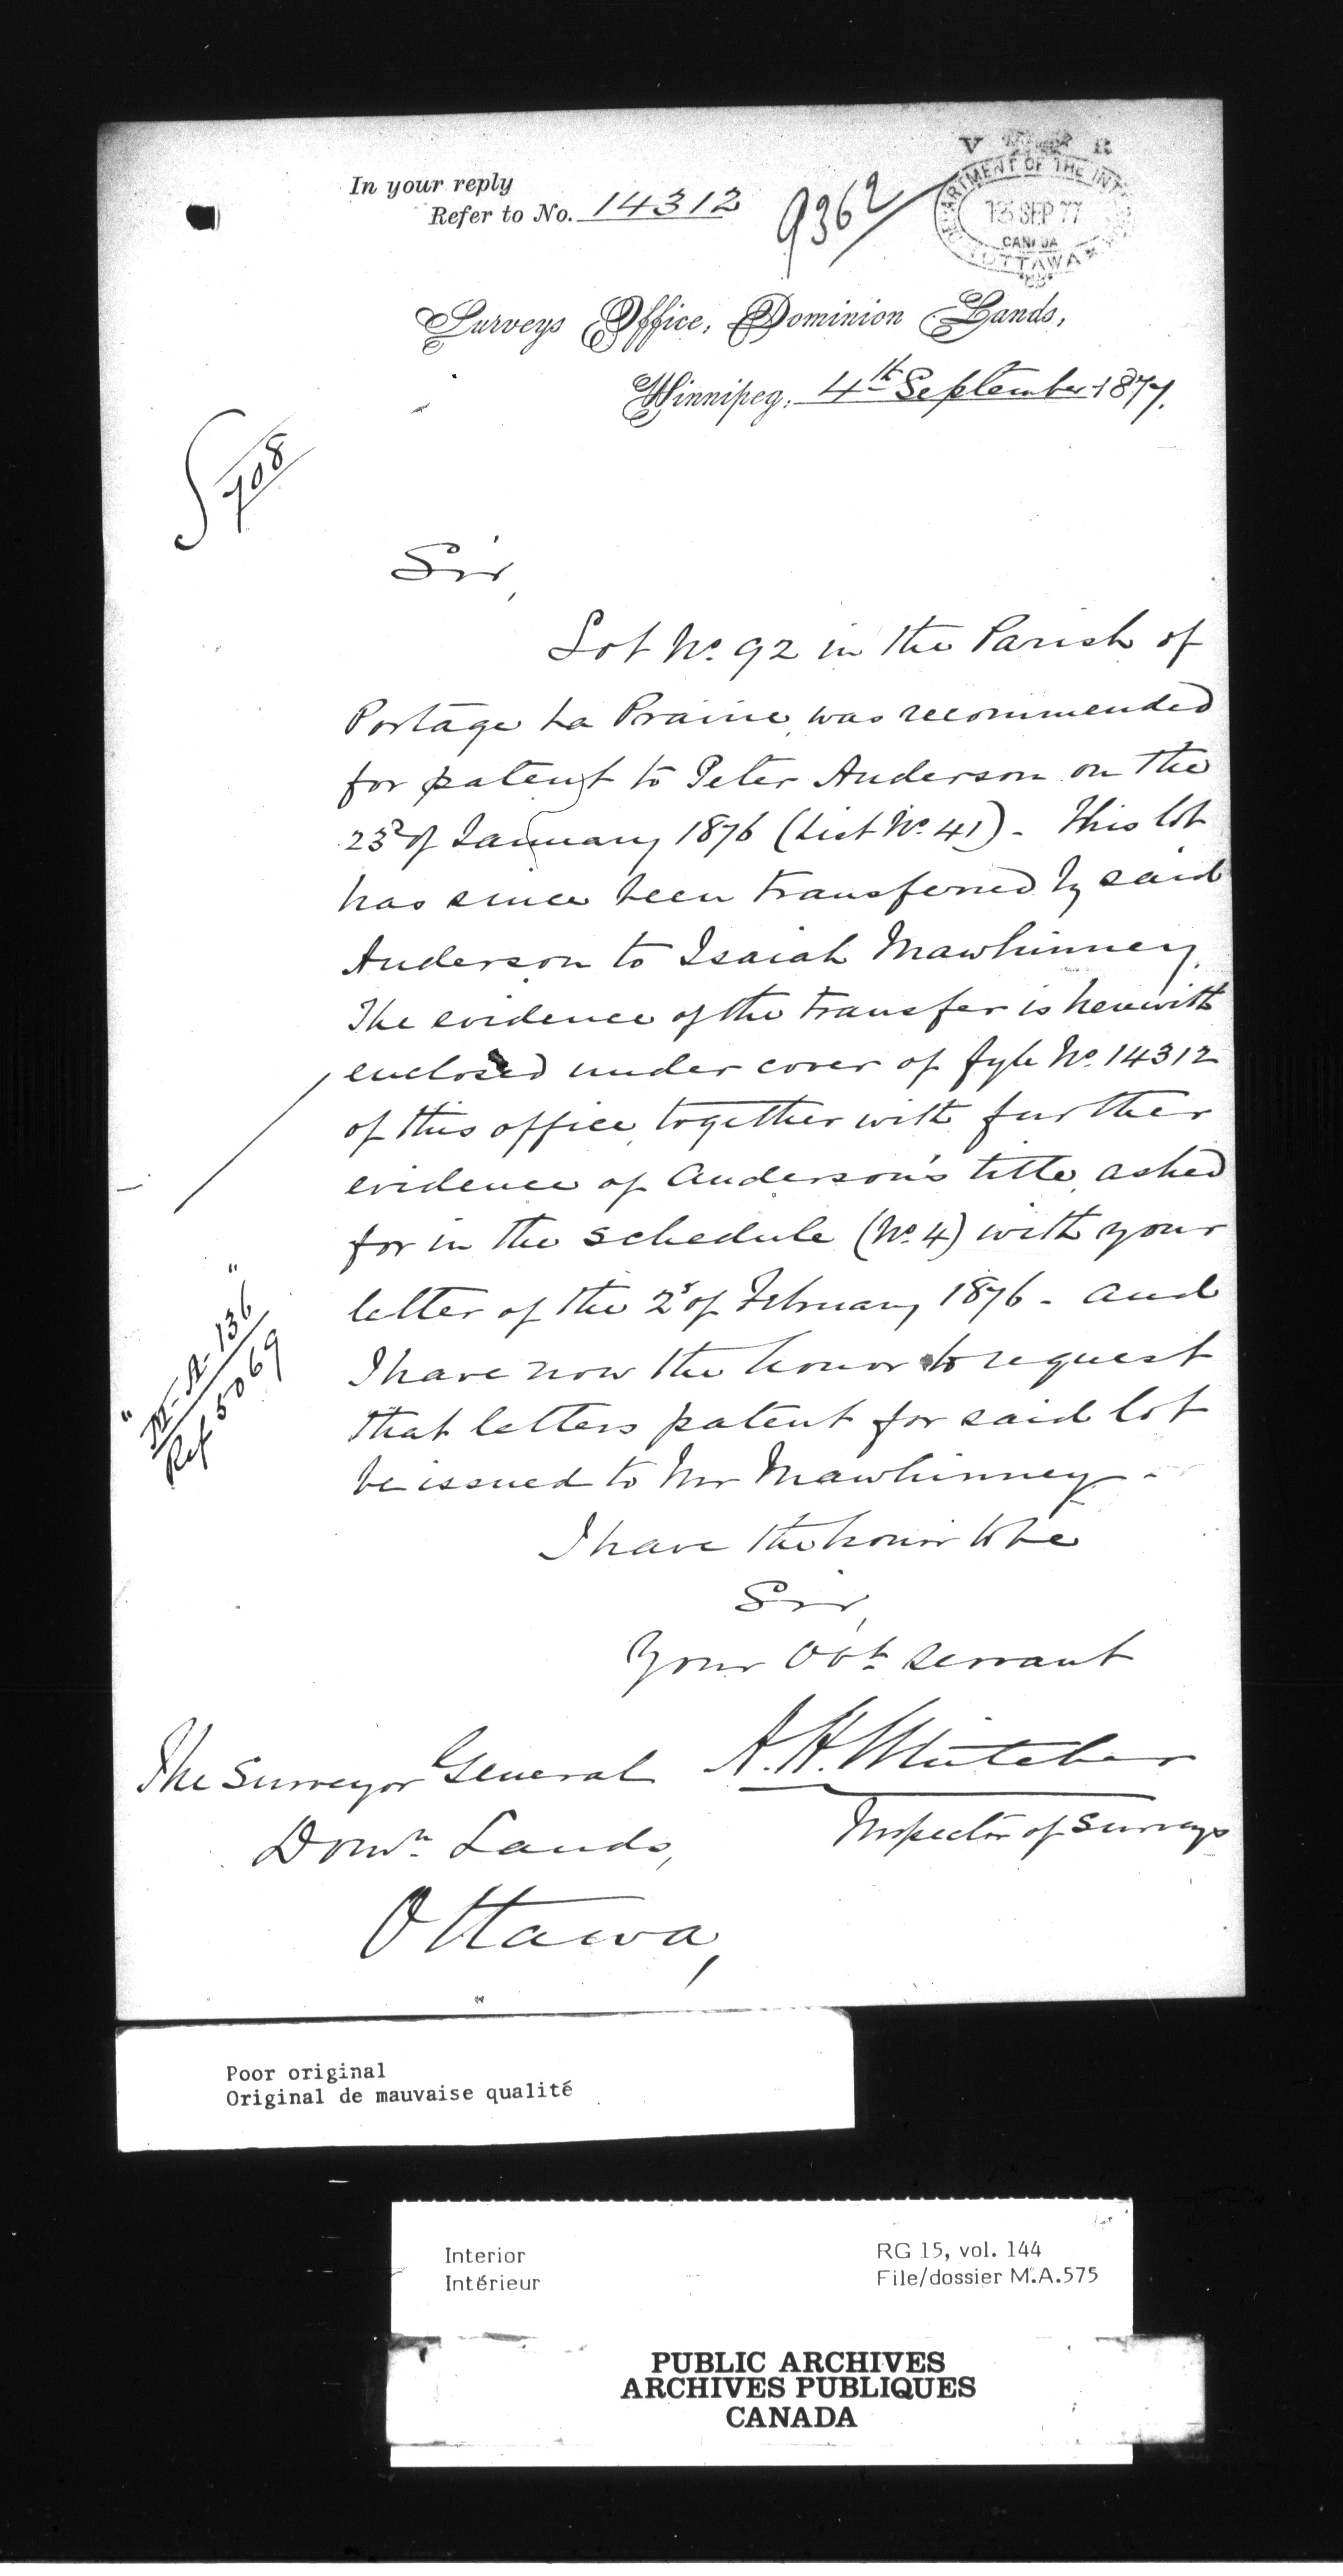 In your reply
Refer to No. 14312
9362
V R
DEPARTMENT OF THE INTERIOR
13 SEP 77
CANADA
OTTAWA
Surveys Office, Dominion Lands,
Winnipeg, 4th September 1877.
708
Sir,
Lot No. 92 in the Parish of
Portage La Prairie, was recommended
for patent to Peter Anderson on the
23d of January 1876 (List No. 41) - This lot
has since been transferred by said
Anderson to Isaiah Mawhinney.
The evidence of the transfer is herewith
enclosed under cover of fyle No. 14312
of this office, together with further
evidence of Anderson's title, asked
for in the schedule (No. 4) with your
letter of the 2d of February 1876 - and
I have now the honor to request
that letters patent for said lot
be issued to Mr Mawhinney -
"M-A-136"
Ref 5069
I have the honor to be
Sir,
Your Obt. servant
A. H. Whitcher
Inspector of Surveys
The Surveyor General
Domn. Lands,
Ottawa,
Poor original
Original de mauvaise qualité
Interior
Intérieur
RG 15, vol. 144
File/dossier M.A.575
PUBLIC ARCHIVES
ARCHIVES PUBLIQUES
CANADA